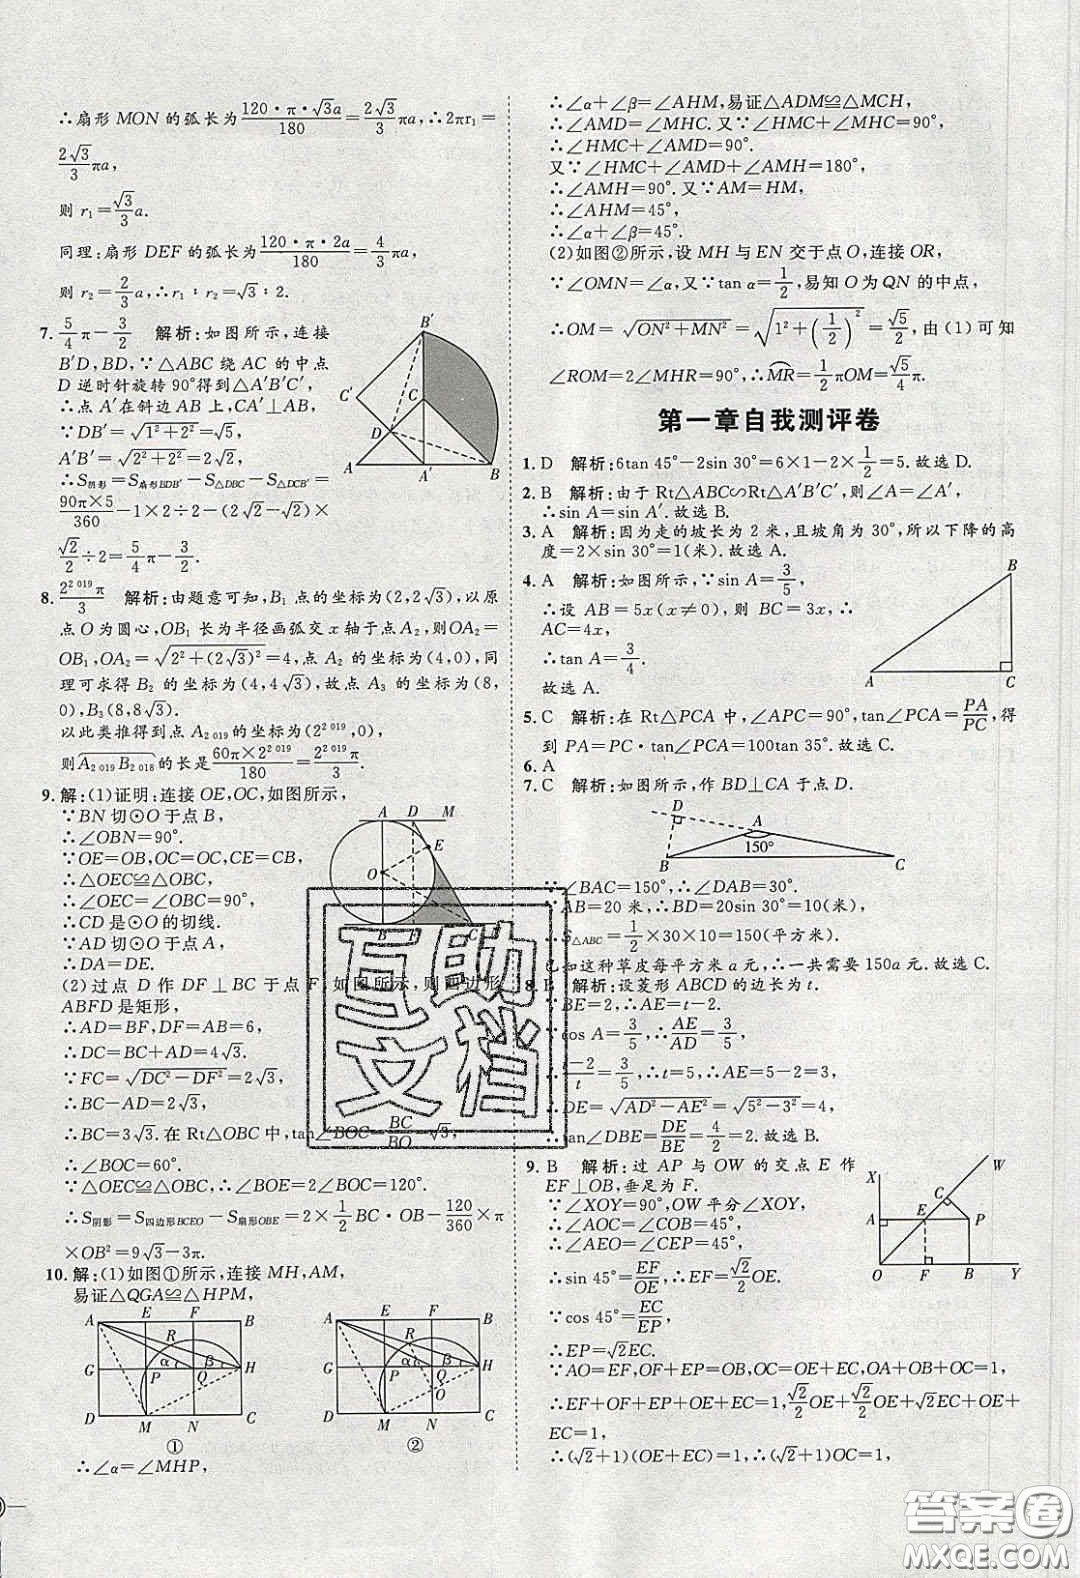 ∴扇形 MON 的弧长为 120·π·√3a/180=2√3/3πa,∴2πr₁=
2√3/3πa,
则 r₁=√3/3a.
同理:扇形 DEF 的弧长为 120·π·2a/180=4/3πa,
则 r₂=2/3a,∴r₁∶r₂=√3∶2.
7. 5/4π-3/2 解析:如图所示,连接
B′D,BD,∵△ABC 绕 AC 的中点
D 逆时针旋转 90°得到△A′B′C′,
∴点 A′在斜边 AB 上,CA′⊥AB.
∵DB′=√(1²+2²)=√5,
A′B′=√(2²+2²)=2√2,
∴S阴影=S扇形BDB′-S△DBC-S△DCB′=
90π×5/360-1×2÷2-(2√2-√2)×
√2÷2=5/4π-3/2.
B′
C′
C
D
A
A′
B
8. 2^2 019π/3 解析:由题意可知,B₁ 点的坐标为(2,2√3),以原
点 O 为圆心,OB₁ 长为半径画弧交 x 轴于点 A₂,则OA₂=
OB₁,OA₂=√(2²+(2√3)²)=4,点 A₂ 的坐标为(4,0),同
理可求得 B₂ 的坐标为(4,4√3),故点 A₃ 的坐标为(8,
0),B₃(8,8√3).
以此类推得到点 A₂ ₀₁₉的坐标为(2^2 019,0),
则A₂ ₀₁₉B₂ ₀₁₈的长是60π×2^2 019/180=2^2 019π/3.
9. 解:(1)证明:连接 OE,OC,如图所示,
∵BN 切⊙O 于点 B,
∴∠OBN=90°.
∵OE=OB,OC=OC,CE=CB,
∴△OEC≌△OBC,
∴∠OEC=∠OBC=90°,
∴CD 是⊙O 的切线.
∵AD 切⊙O 于点 A,
∴DA=DE.
A D M
E
O
B F C
(2)过点 D 作 DF⊥BC 于点 F,如图所示,则四边形
ABFD 是矩形,
∴AD=BF,DF=AB=6,
∴DC=BC+AD=4√3.
∵FC=√(DC²-DF²)=2√3,
∴BC-AD=2√3,
∴BC=3√3.在 Rt△OBC 中,tan∠BOC=BC/BO=√3,
∴∠BOC=60°.
∵△OEC≌△OBC,∴∠BOE=2∠BOC=120°.
∴S阴影=S四边形BCEO-S扇形OBE=2×1/2BC·OB-120/360×π
×OB²=9√3-3π.
10. 解:(1)如图①所示,连接 MH,AM,
易证△QGA≌△HPM,
A E F B
R
G P α Q β H
D M N C
①
A E F B
R
G P α Q β H
O
D M N C
②
∴∠α=∠MHP,
∴∠α+∠β=∠AHM,易证△ADM≌△MCH,
∴∠AMD=∠MHC.又∵∠HMC+∠MHC=90°,
∴∠HMC+∠AMD=90°.
又∵∠HMC+∠AMD+∠AMH=180°,
∴∠AMH=90°.又∵AM=HM,
∴∠AHM=45°,
∴∠α+∠β=45°.
(2)如图②所示,设 MH 与 EN 交于点 O,连接 OR,
∵∠OMN=∠α,又∵tan α=1/2,易知 O 为 QN 的中点,
∴OM=√(ON²+MN²)=√(1²+(1/2)²)=√5/2,由(1)可知
∠ROM=2∠MHR=90°,∴MR=1/2πOM=√5/4π.
第一章自我测评卷
1. D 解析:6tan 45°-2sin 30°=6×1-2×1/2=5.故选 D.
2. B 解析:由于 Rt△ABC∽Rt△A′B′C′,则∠A=∠A′,
∴sin A=sin A′.故选 B.
3. A 解析:因为走的坡长为 2 米,且坡角为 30°,所以下降的高
度=2×sin 30°=1(米).故选 A.
4. A 解析:如图所示,∵sin A=3/5,
∴设 AB=5x(x≠0),则 BC=3x,∴
AC=4x,
∴tan A=3/4.
故选 A.
B
A
C
5. C 解析:在 Rt△PCA 中,∠APC=90°,tan∠PCA=PA/PC,得
到 PA=PC·tan∠PCA=100tan 35°.故选 C.
6. A
7. C 解析:如图所示,作 BD⊥CA 于点 D.
D
A
150°
B
C
∵∠BAC=150°,∴∠DAB=30°.
∵AB=20 米,∴BD=20sin 30°=10(米),
∴S△ABC=1/2×30×10=150(平方米).
已知这种草皮每平方米 a 元,∴一共需要 150a 元.故选 C.
8. B 解析:设菱形 ABCD 的边长为 t.
∵BE=2,∴AE=t-2.
∵cos A=3/5,∴AE/AD=3/5,
∴t-2/t=3/5,∴t=5,∴AE=5-2=3,
∴DE=√(AD²-AE²)=√(5²-3²)=4,
∴tan∠DBE=DE/BE=4/2=2.故选 B.
9. B 解析:过 AP 与 OW 的交点 E 作
EF⊥OB,垂足为 F.
∵∠XOY=90°,OW 平分∠XOY,
∴∠AOC=∠COB=45°,
∴∠AEO=∠CEP=45°,
∴sin 45°=EF/OE,∴EF=√2/2OE.
∵cos 45°=EC/EP,
∴EP=√2EC.
X
W
C
A E P
O F B Y
∵AO=EF,OF+EP=OB,OC=OE+EC,OA+OB+OC=1,
∴EF+OF+EP+OE+EC=1,∴√2/2OE+√2/2OE+√2EC+OE+
EC=1,∴(√2+1)(OE+EC)=1,∴(√2+1)OC=1,
互助
文档
答案圈
MXQE.COM